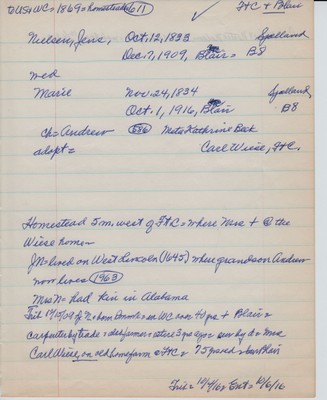 to US + WC = 1869 = homestead 611 Ft C + Blair
Nielsen, Jens, Oct. 12, 1833 Sjælland
Dec. 7, 1909, Blair = B8
wed
Marie Nov. 24, 1834 Sjælland
Oct. 1, 1916, Blair B8
ch = Andrew 686 Meta Kathrine Beck
adopt = Carl Wiese, Ft C.
Homestead 5 m. west of Ft C = where Neve + @ the
Wiese home =
JN = lived on West Lincoln (1645) where grandson Andrew
now lives 1963
Mrs N = had kin in Alabama
Trib 12/15/09 JN = born Denmk = in WC over 40 yrs + Blair =
carpenter by trade = also farmer = retire 3 yrs ago =
Carl Wiese, on old home farm @ Ft C = 75 grocd = bur Blair
Trib = 10/4/16 Ent = 10/6/16